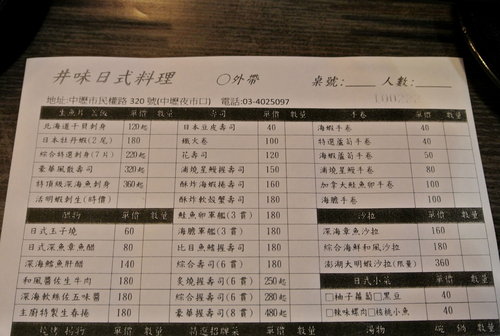 井味日式料理 ○外帶 桌號:____ 人數:____
地址:中壢市民權路 320 號(中壢夜市口) 電話:03-4025097
生魚片 蓋飯 單價 數量 壽司 單價 數量 手卷 單價 數量
北海道干貝刺身 120起 日本豆皮壽司 40 海蝦手卷 40
日本牡丹蝦(2尾) 180 鐵火卷 100 特選蘆筍手卷 40
綜合特選刺身(7片) 220起 花壽司 120 海蝦蘆筍手卷 50
豪華風散壽司 320起 蒲燒星鰻握壽司 150 蒲燒星鰻手卷 80
特頂級深海魚刺身 360起 酥炸海蝦捲壽司 160 加拿大鮭魚卵手卷 100
活明蝦刺生(時價) 酥炸軟殼蟹壽司 180 海膽手卷 100
醋物 單價 數量 鮭魚卵軍艦(3貫) 180 沙拉 單價 數量
日式玉子燒 60 海膽軍艦(3貫) 180 深海章魚沙拉 160
日式深魚章魚醋 80 比目魚鰭握壽司 180 綜合海鮮和風沙拉 180
深海鱈魚肝醋 140 綜合壽司(6貫) 180 澎湖大明蝦沙拉(限量) 360
和風醬佐生牛肉 180 炙燒握壽司(6貫) 250起 日式小菜 單價 數量
深海軟絲佐五味醬 180 綜合握壽司(6貫) 280起 □柚子蘿蔔□黑豆 40
主廚特製生春捲 180 豪華握壽司(8貫) 480起 □辣味螺肉□桔桃小魚 40
燒烤 揚物 單價 數量 特選招牌菜 單價 數量 湯物 碗 鍋 數量